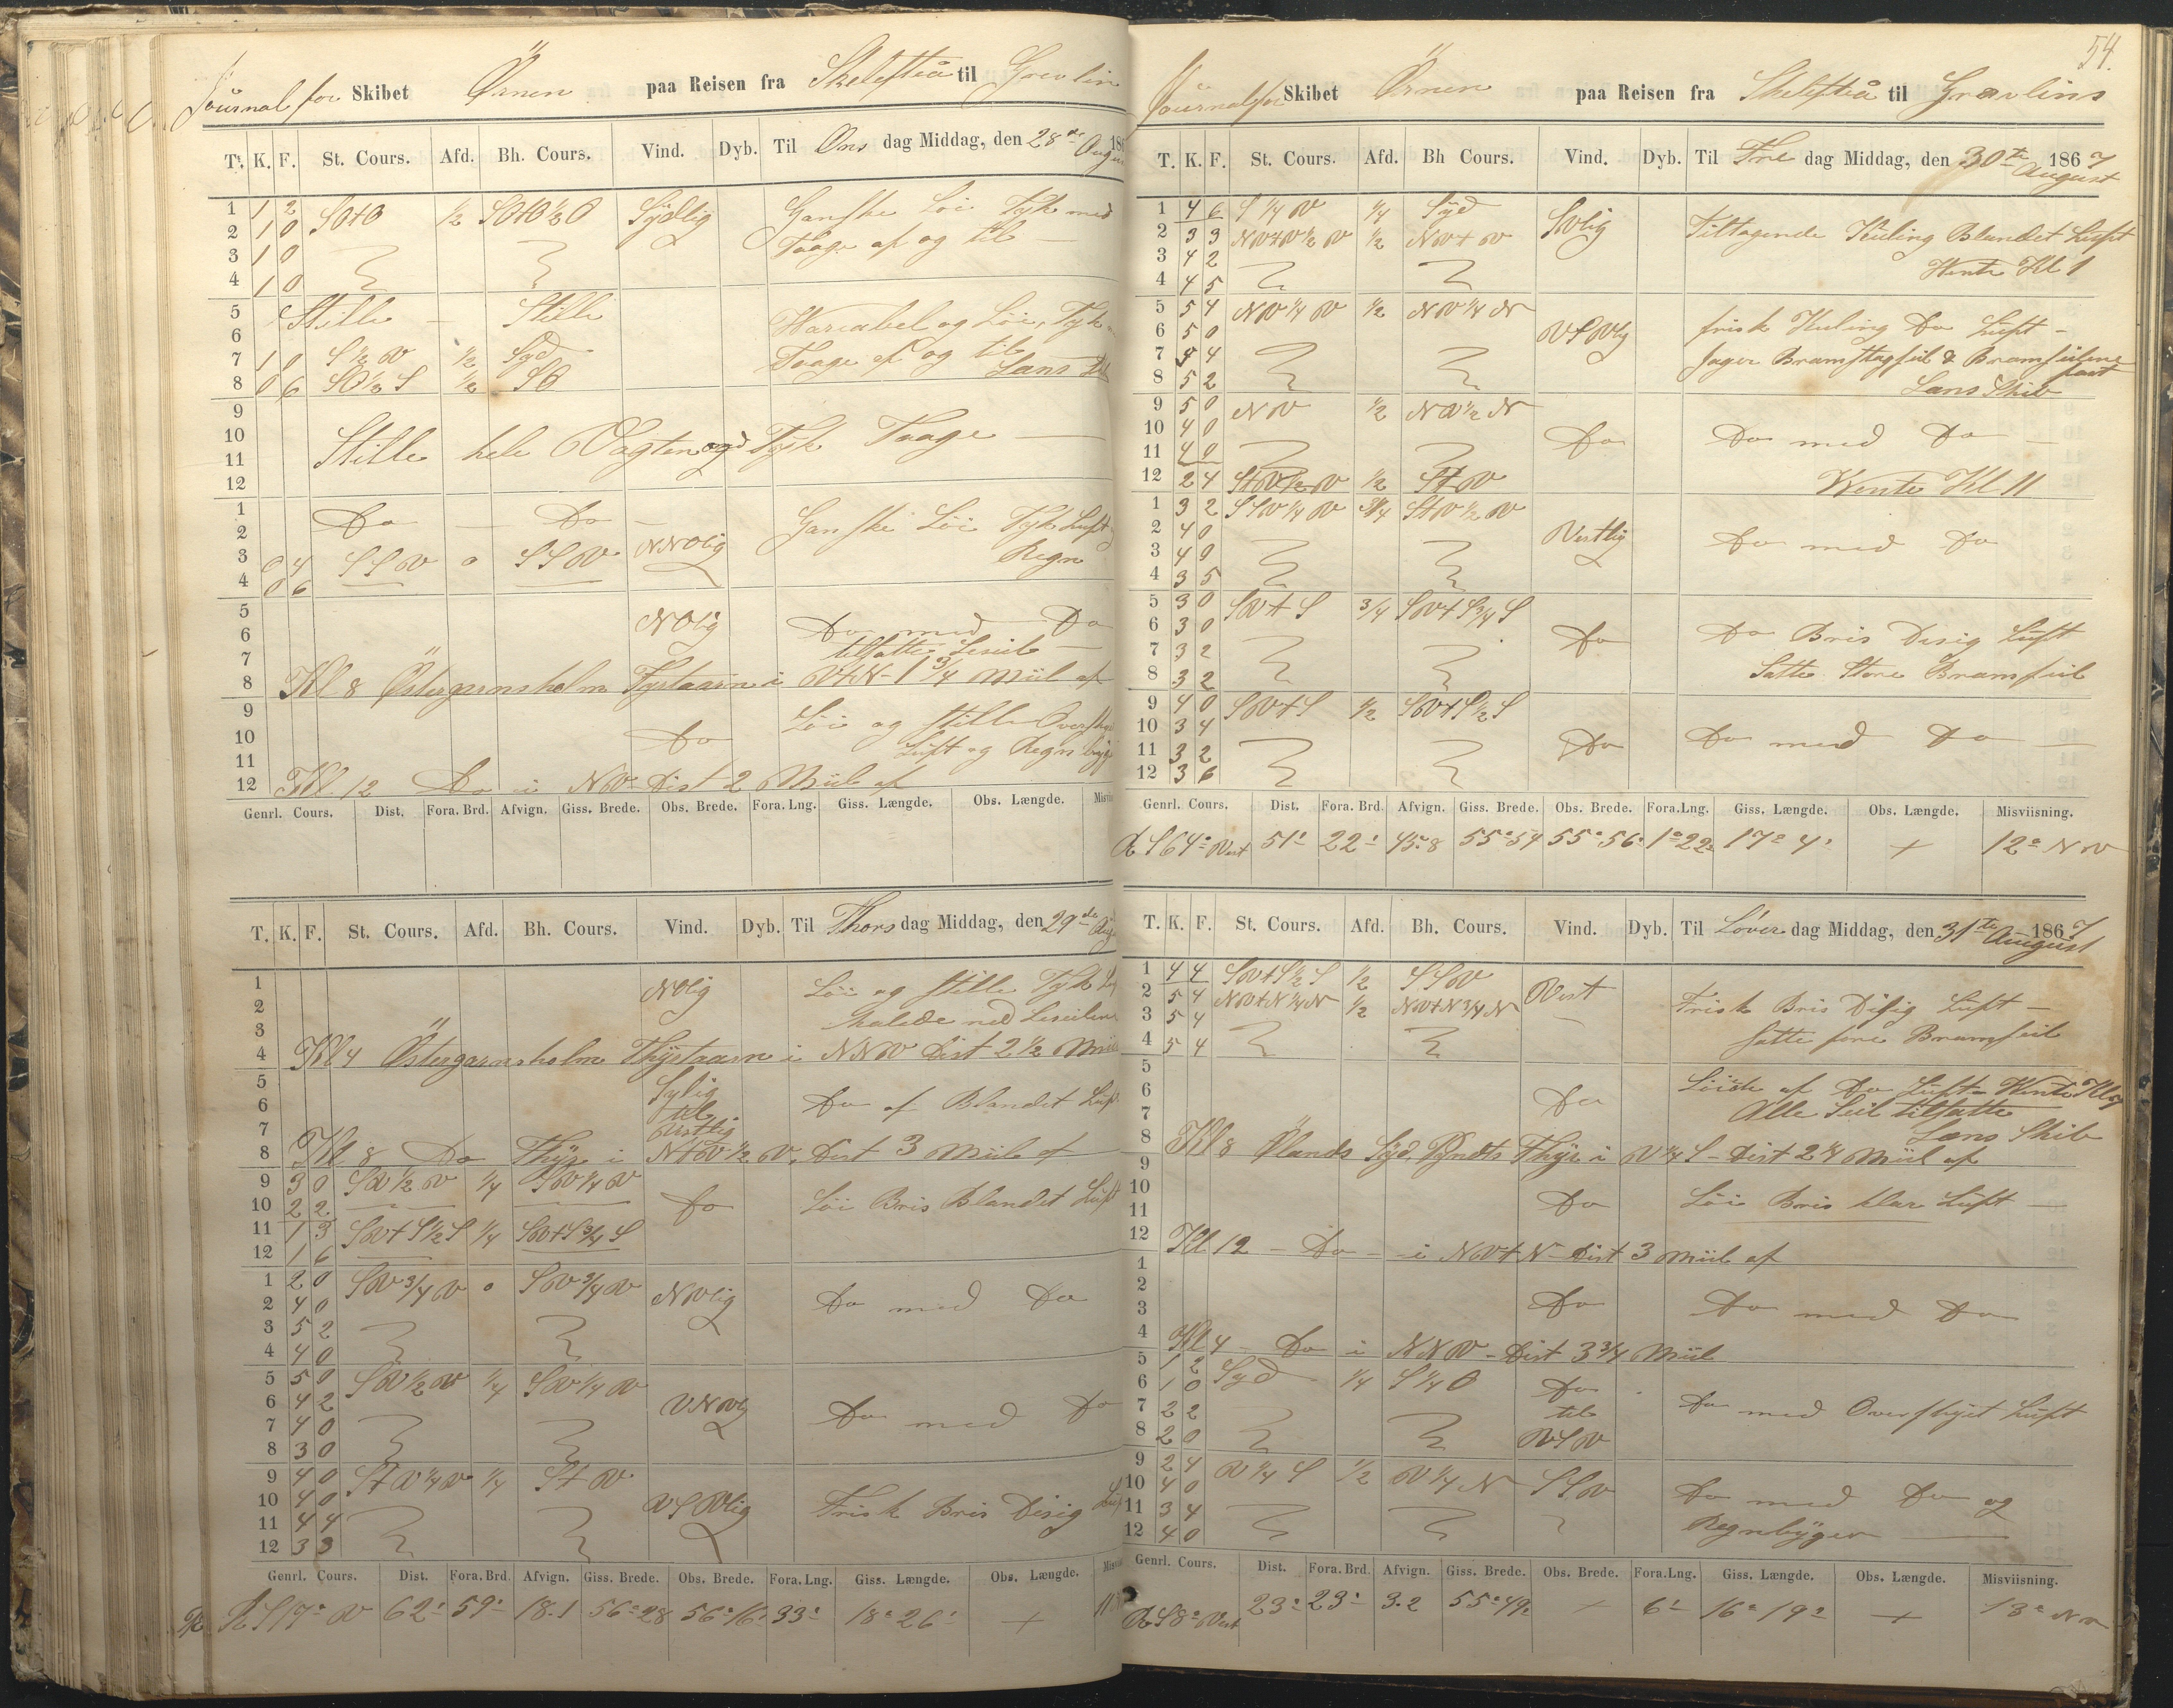 Journal for Skibet Örnen paa Reisen fra Skelefteå til Grevlin
T. K. F. St. Cours. Afd. Bh. Cours. Vind. Dyb. Til Ons dag Middag, den 28de August 186
1 1 2 SOtO ½ SOtO½O Sydlig Ganske Löi Tyk med
2 1 0 Taage af og til —
3 1 0
4 1 0
5 Stille — Stille Wariabel og Löi, Tyk
6
7 1 0 S½W ½ Syd Taage af og til
8 0 6 SO½S ½ SO Læns Skib
9
10 Stille hele Vagten og Tyk Taage —
11
12
1 Do — Do — Ganske Löi Tyk Luft
2 NNOlig
3 0 4 SSW 0 SSW Regn
4 0 6
5 NOlig
6 Do med Do
7 tilsatte Leseil —
8 Kl 8 Östergarnsholm Fyrtaarn i WtN - 1¾ Miil af
9 Löi og stille
10 Do Luft og Regn
11
12 Kl 12 Do i NW Dist 2 Miil af
Genrl. Cours. Dist. Fora. Brd. Afvign. Giss. Brede. Obs. Brede. Fora. Lng. Giss. Længde. Obs. Længde.
T. K. F. St. Cours. Afd. Bh. Cours. Vind. Dyb. Til Thors dag Middag, den 29de Aug
1 NOlig Löi og stille Tyk
2 halede ned Leseilene
3
4 Kl 4 Östergarnsholm Fhyrtaarn i NNW Dist 2½ Miil
5 Sylig
6 til Do af Blandet Luft
7 Vestlig
8 Kl 8 Do Fhyr i NtW½W. Dist 3 Miil af
9 3 0 SW½W ¼ SW¼W
10 2 2 Do Löi Bris Blandet Luft
11 1 3 SWtS½S ¼ SWtS¾S
12 1 6
1 2 0 SW¾W 0 SW¾W NWlig
2 4 0 Do med Do
3 5 2
4 4 0
5 5 0 SW½W ¼ SW¼W
6 4 2 VNWlig
7 4 0 Do med Do
8 3 0
9 4 0 StW¼W ¼ StW
10 4 0 WSWlig Frisk Bris Disig Luft
11 4 4
12 3 3
Genrl. Cours. Dist. Fora. Brd. Afvign. Giss. Brede. Obs. Brede. Fora. Lng. Giss. Længde. Obs. Længde.
R S 17° W 62' 59' 18.1 56° 28 56° 16' 33' 18° 26' +
54.
Journal for Skibet Örnen paa Reisen fra Skelefteå til Gravlins
T. K. F. St. Cours. Afd. Bh Cours. Vind. Dyb. Til Fre dag Middag, den 30te August 1867
1 4 6 S¼W ¼ Syd SWlig Tiltagende Kuling Blandet Luft
2 3 3 NWtW½W ½ NWtW
3 4 2 Wente Kl 1
4 4 5
5 5 4 NW¼W ½ NW¼N frisk Kuling Do Luft —
6 5 0 WSWlig
7 4 4 Jager Bramstagseil & Bramseilene fast
8 5 2 Læns Skib
9 5 0 NW ½ NW½N
10 4 0 Do Do med Do —
11 4 0
12 2 4 StW½W ½ StW Wente Kl 11
1 3 2 SSW¼W ¾ StW½W
2 4 0 Vestlig Do med Do
3 4 0
4 3 5
5 3 0 SWtS ¾ SWtS¾S
6 3 0 Do Do Bris Disig Luft
7 3 2
8 3 2 Satte Store Bramseil
9 4 0 SWtS ½ SWtS½S
10 3 4
11 3 2 Do Do med Do —
12 3 6
Genrl. Cours. Dist. Fora. Brd. Afvign. Giss. Brede. Obs. Brede. Fora.Lng. Giss. Længde. Obs. Længde. Misviisning.
R S 64° West 51' 22' 45.8 55° 54 55° 56' 1° 22' 17° 4' + 12° NW
T. K. F. St. Cours. Afd. Bh. Cours. Vind. Dyb. Til Löver dag Middag, den 31te August 1867
1 4 4 SWtS½S ½ SSW West
2 5 4 NWtN¼N ½ NWtN¾N Frisk Bris Disig Luft —
3 5 4
4 5 4 satte fore Bramseil
5 Löiede af Do Luft Wente Kl
6 Do
7 Alle Seil tilsatte
8 Læns Skib
Kl 8 Ölands Syd Pyndts Fhyr i W¼S - Dist 2¼ Miil af
9
10 Do Löi Bris klar Luft —
11
12 Kl 12 — Do — i NWtN Dist 3 Miil af
1
2 Do Do med Do
3
4 Kl 4 - Do i NNW - Dist 3¾ Miil
5 1 2 Syd ¼ S¼O Do
6 1 0 til Do med Overskyet Luft
7 2 2
8 2 0 WSW
9 2 4 W¼S ½ W¼N SSW
10 4 0 Do med Do og
11 3 4
12 4 0 Regnbyger —
Genrl. Cours. Dist. Fora. Brd. Afvign. Giss. Brede. Obs. Brede. Fora.Lng. Giss. Længde. Obs. Længde. Misviisning.
R S 8° West 23' 23' 3.2 55° 49' + 6' 16° 19' + 13° NW